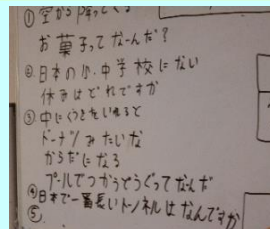 ①空から降ってくる
お菓子ってなーんだ?
②日本の小、中学校にない
休みはどれですか
③中にくうきをいれると
ドーナツみたいな
からだになる
プールでつかうどうぐってなんだ
④日本で一番長いトンネルはなんですか
⑤